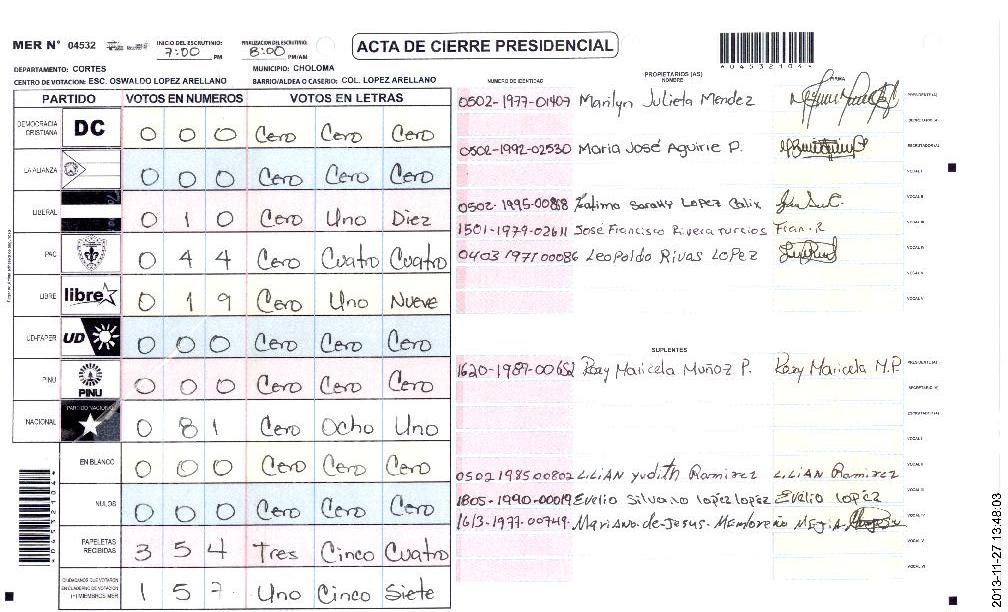 MER N° 04532 INICIO DEL ESCRUTINIO: 7:00 PM FINALIZACION DEL ESCRUTINIO: 8:00 PM/AM ACTA DE CIERRE PRESIDENCIAL
DEPARTAMENTO: CORTES MUNICIPIO: CHOLOMA
CENTRO DE VOTACION: ESC. OSWALDO LOPEZ ARELLANO BARRIO/ALDEA O CASERIO: COL. LOPEZ ARELLANO
*04532104*
PARTIDO VOTOS EN NUMEROS VOTOS EN LETRAS
DEMOCRACIA CRISTIANA DC 0 0 0 Cero Cero Cero
LA ALIANZA 0 0 0 Cero Cero Cero
LIBERAL 0 1 0 Cero Uno Diez
PAC 0 4 4 Cero Cuatro Cuatro
LIBRE libre 0 1 9 Cero Uno Nueve
UD-FAPER UD 0 0 0 Cero Cero Cero
PINU PINU 0 0 0 Cero Cero Cero
NACIONAL PARTIDO NACIONAL 0 8 1 Cero Ocho Uno
EN BLANCO 0 0 0 Cero Cero Cero
NULOS 0 0 0 Cero Cero Cero
PAPELETAS RECIBIDAS 3 5 4 Tres Cinco Cuatro
CIUDADANOS QUE VOTARON EN CUADERNO DE VOTACION (+) MIEMBROS MER 1 5 7 Uno Cinco Siete
NUMERO DE IDENTIDAD PROPIETARIOS (AS) NOMBRE FIRMA
0502-1977-01407 Marilyn Julieta Mendez PRESIDENTE (A)
SECRETARIO (A)
0502-1992-02530 Maria José Aguirre P. ESCRUTADOR (A)
VOCAL I
0502-1995-00868 Fatima Sarahy Lopez Calix VOCAL II
1501-1979-02611 José Francisco Rivera turcios Fran. R VOCAL III
0403 1971 00086 Leopoldo Rivas Lopez VOCAL IV
VOCAL V
SUPLENTES
1620-1989-00652 Rosy Maricela Muñoz P. Rosy Maricela M.P. PRESIDENTE (A)
SECRETARIO (A)
ESCRUTADOR (A)
VOCAL I
0502 1985 00802 LiLiAN yudith Ramirez LiLiAN Ramirez VOCAL II
1805-1990-00019 Evelio Silvano lopez lopez Evelio lopez VOCAL III
1613-1977-00749 Mariano-de-Jesus- Membreño Mejia VOCAL IV
VOCAL V
VOCAL VI
2013-11-27 13:48:03